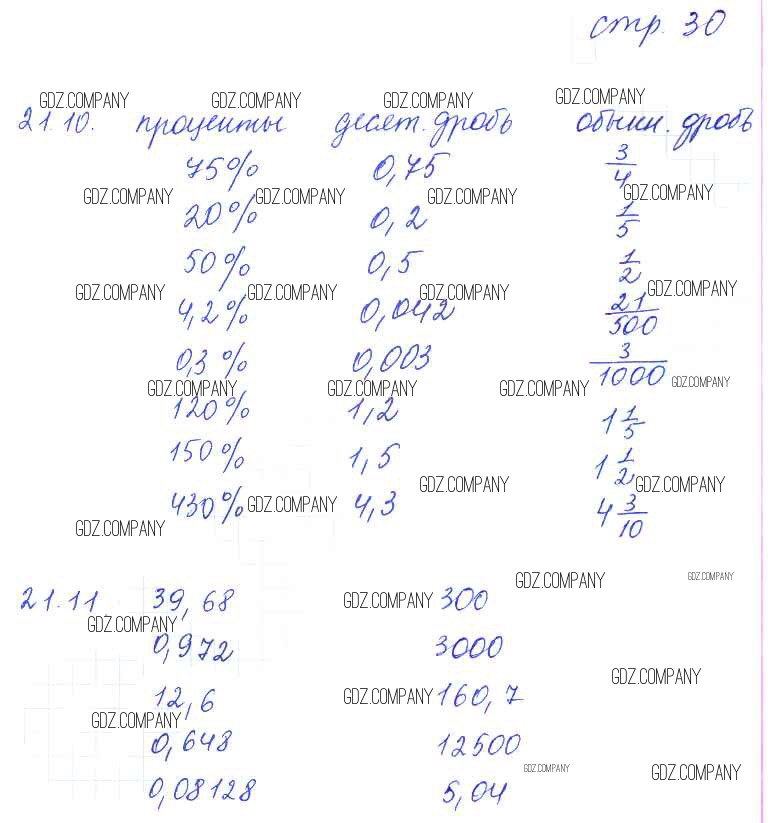 стр. 30
GDZ.COMPANY GDZ.COMPANY GDZ.COMPANY GDZ.COMPANY
21.10. проценты десят. дробь обыкн. дробь
75% 0,75 3/4
GDZ.COMPANY GDZ.COMPANY GDZ.COMPANY GDZ.COMPANY
20% 0,2 1/5
50% 0,5 1/2
GDZ.COMPANY GDZ.COMPANY GDZ.COMPANY GDZ.COMPANY
4,2% 0,042 21/500
0,3% 0,003 3/1000
GDZ.COMPANY GDZ.COMPANY GDZ.COMPANY GDZ.COMPANY
120% 1,2 1 1/5
150% 1,5 1 1/2
GDZ.COMPANY GDZ.COMPANY
430% GDZ.COMPANY 4,3 4 3/10
GDZ.COMPANY
GDZ.COMPANY GDZ.COMPANY
21.11 39,68 GDZ.COMPANY 300
GDZ.COMPANY
0,972 3000
GDZ.COMPANY
12,6 GDZ.COMPANY 160,7
GDZ.COMPANY
0,648 12500
GDZ.COMPANY GDZ.COMPANY
0,08128 5,04